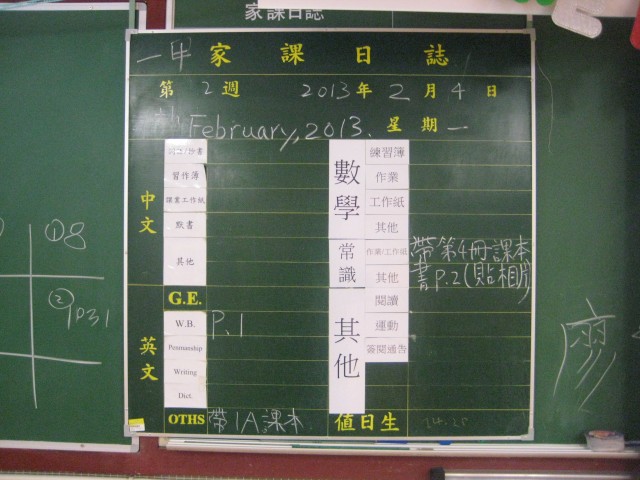 家課日誌
一甲 家課日誌
第 2 週 2013 年 2 月 4 日
February, 2013. 星期一
中文
習作簿
課業工作紙
默書
其他
G.E.
英文
W.B. P.1
Penmanship
Writing
Dict.
OTHS 帶1A課本
數學
練習簿
作業
工作紙
其他
常識
作業/工作紙 帶第4冊課本
其他 書P.2(貼相片)
其他
閱讀
運動
簽閱通告
值日生
①8
②9p31
廖